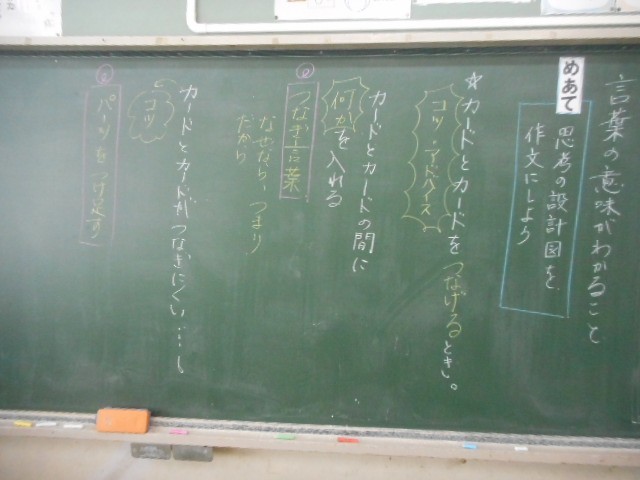 言葉の意味がわかること
めあて
思考の設計図を
作文にしよう
☆カードとカードをつなげるとき。
コツ・アドバイス
カードとカードの間に
何かを入れる
つなぎ言葉
なぜなら、つまり
だから
カードとカードがつなぎにくい……。
コツ
パーツをつけ足す